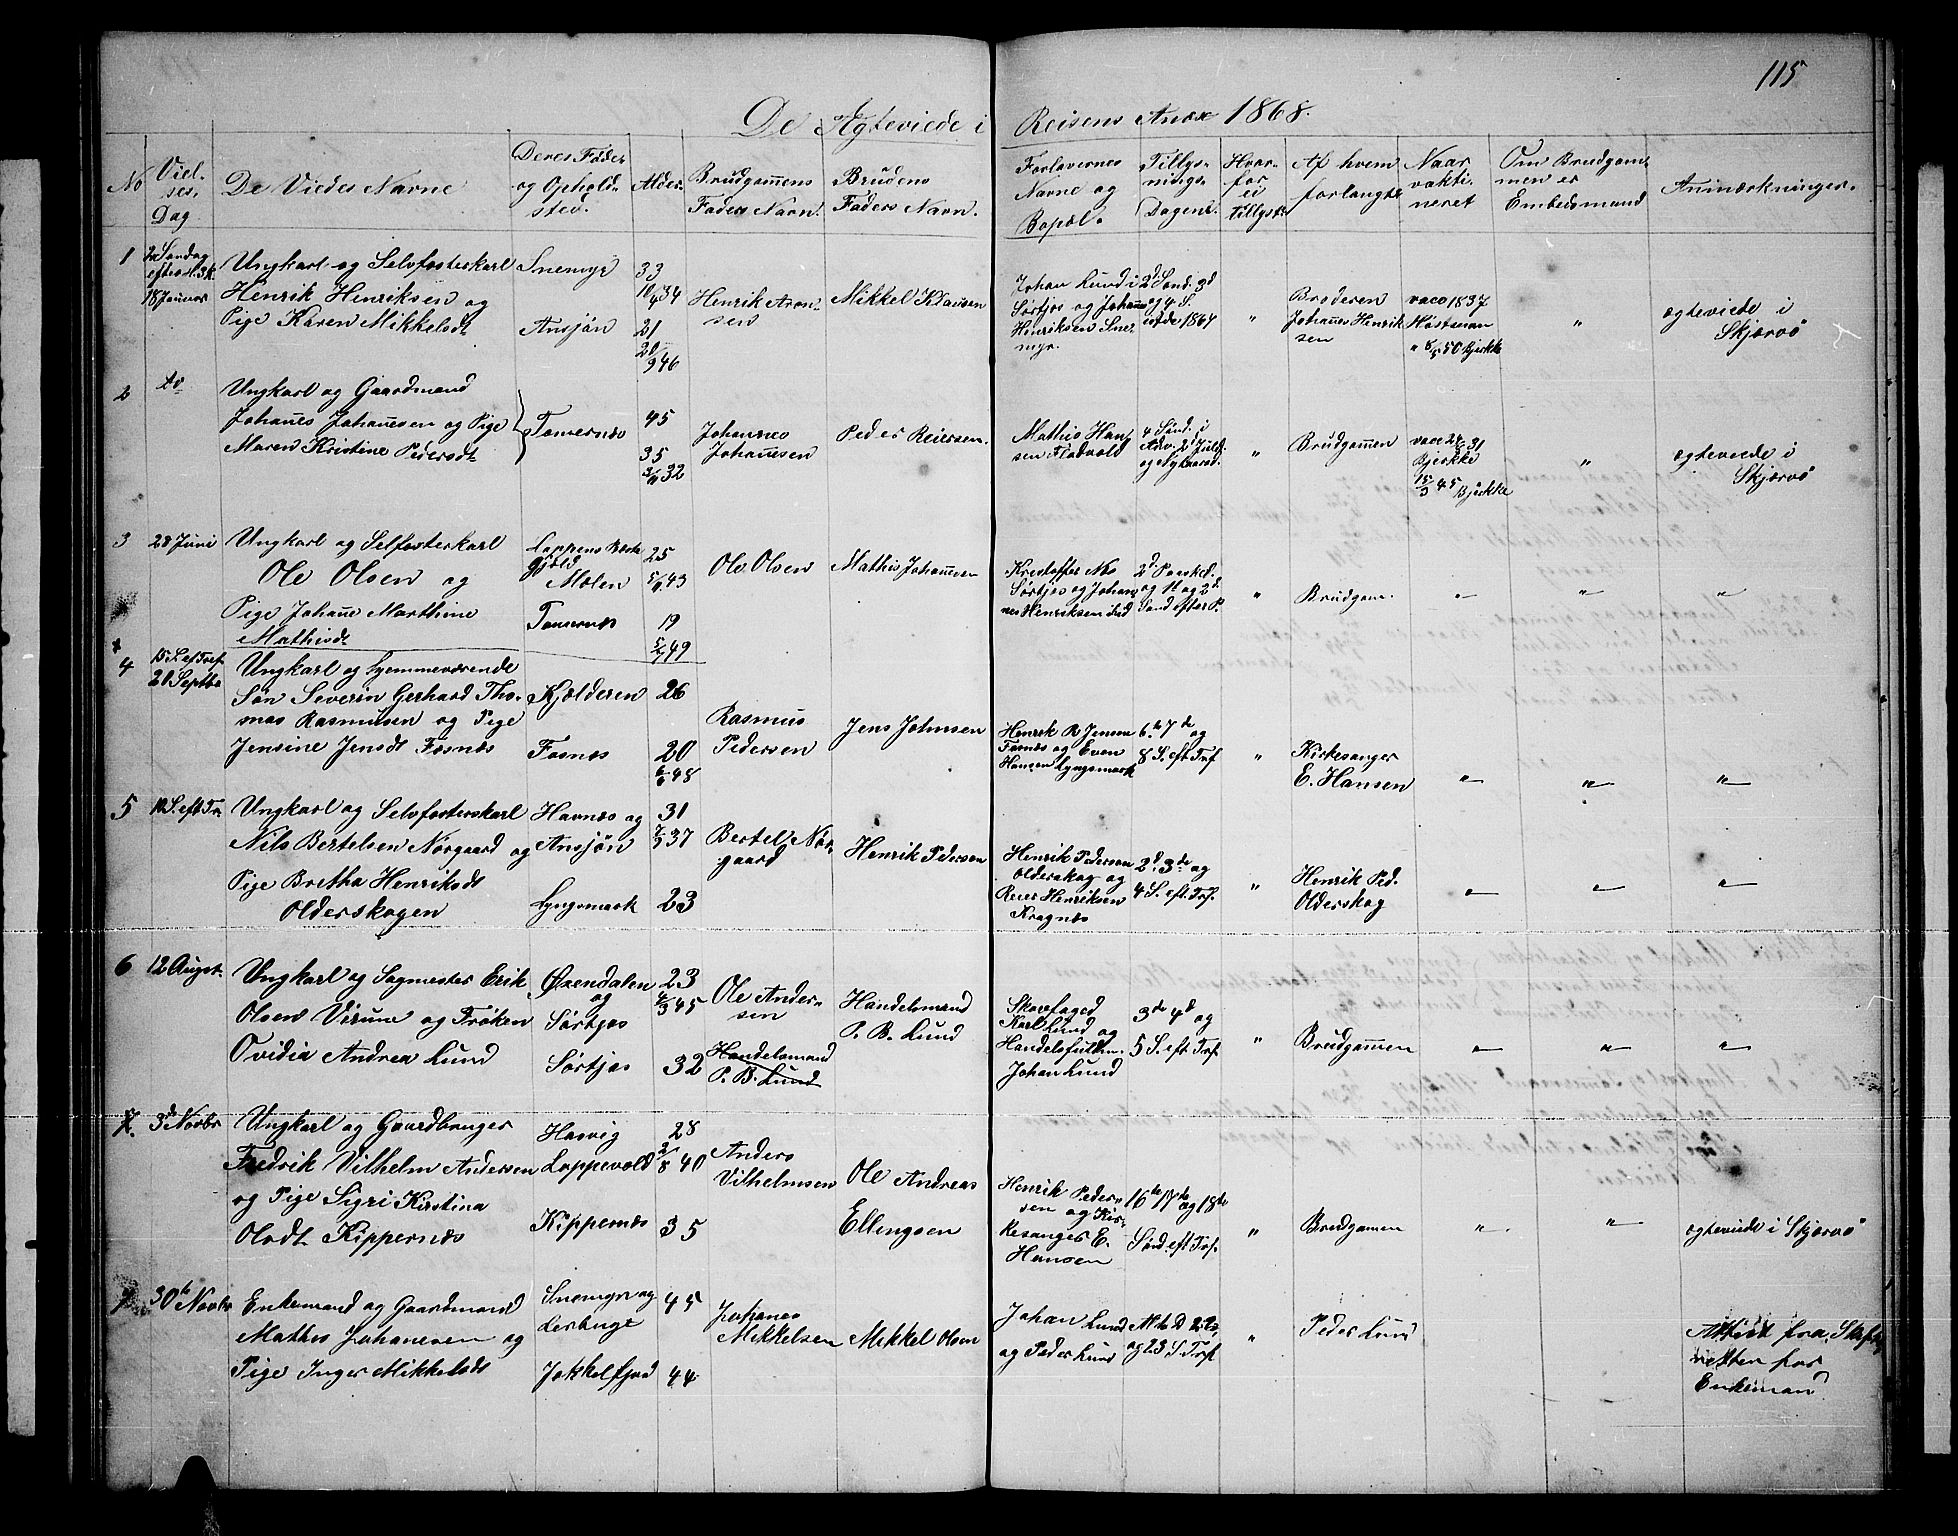 115
De Agteviede i Reisens Anex 1868.
No
Viel-
ses-
Dag
De Viedes Navne
Deres Føde-
og Ophold-
sted.
Alder
Brudgommens
Faders Navn.
Brudens
Faders Navn.
Forlovernes
Navne og
Bopæl.
Tillys-
nings-
Dagene.
Hvor-
for
ei
tillyst
Af hvem
forlangte
Naar
vakti-
neret
Om Brudgom-
men er
Embedsmand
Anmærkninger.
1
2 Søndag
efter H. 3 K.
18 Januar
Ungkarl og Selvfosterkarl
Henrik Henriksen og
Pige Karen Mikkelsdt
Snemyr
Ansjøn
33
10/4 34
21
20/9 46
Henrik Aron-
sen
Mikkel Klausen
Johan Lund i
Sørtjos og Johannes
Henriksen Sne-
myr.
2d Sønd. 3d
og 4 S.
1867
"
Broderen
Johannes Henrik
sen
vacc 1837
Høstman
" 8/5 50 Bjerkke
"
ægteviede i
Skjærvø
2
do
Ungkarl og Gaardmand
Johanes Johanesen og Pige
Maren Kristine Pedersdt
Tømernæs
45
35
32
Johannes
Johanesen
Peder Reiersen.
Mathis Han-
sen Flatvold
4 Sønd. i
Adv. 2d Juled.
og Nytaarsd.
"
Brudgamen
vacc 31
Bjerkke
15/3 45 Bjerkke
"
ægteviede i
Skjærvø
3
28 Juni
Ungkarl og Selfosterkarl
Ole Olsen og
Pige Johane Marthine
Mathisdt
Molen
Tømernæs
25
43
19
49
Ole Olsen
Mathis Johannesen
Kristoffer Nis
Sørtjos og Johan-
nes Henriksen ibid
2d Paasked.
og 1t og 2d
Sønd efter P.
"
Brudgom.
"
"
"
4
15 S. ef Tref
20 Septbr
Ungkarl og hjemmeværende
Søn Severin Gerhard Tho-
mas Rasmusen og Pige
Jensine Jensdt Fosnæs
Kjælderen
Fosnæs
26
20
6/6 48
Rasmus
Pedersen
Jens Johnsen
Henrik R Jensen
Fosnæs og Even
Hansen Lyngsmark
6te 7de og
8 S. eft Tref
"
Kirkesanger
E. Hansen
"
"
"
5
10 S. eft Tr.
Ungkarl og Selvfosterskarl
Nils Bertelsen Norgaard og
Pige Bretha Henriksdt
Olderskogen
Havnæs og
Ansjøn
Lyngsmark
31
37
23
Bertel Nor-
gaard
Henrik Pedersen
Henrik Pedersen
Olderskog og
Reier Henriksen
Kragnæs
2d 3de og
4 S. eft. Tref.
"
Henrik Ped.
Olderskog
"
"
"
6
12 August.
Ungkarl og Sagmester Erik
Olsen Virum og Frøken
Ovidia Andrea Lund
Øxendalen
og
Sørtjos
Sørtjos
23
4/3 45
32
Ole Ander-
sen
Handelsmand
P. B. Lund
Handelsmand
P. B. Lund
Skovfoged
Karl Lund og
Handelsfuldm.
Johan Lund
3de 4de og
5 S. eft Tref
"
Brudgammen
"
"
"
7.
3de Novbr
Ungkarl og Gaardbruger
Fredrik Vilhelm Andersen
og Pige Sigri Kirstina
Olsdt Kippernæs
Hasvig
Loppevold
Kippernæs
28
2/8 40
35
Anders
Vilhelmsen
Ole Andreas
Ellingsen
Henrik Peder-
sen og Kir-
kesanger E.
Hansen
16te 17de og 18de
Sønd. eft Tref.
"
Brudgamen
"
"
ægteviede i Skjærvø
30te Novbr
Enkemand og Gaardmand
Mathis Johanesen og
Pige Inger Mikkelsdt
Snemyr og
Lerbugt
Jøkkelfjord
45
44
Johanes
Mikkelsen
Mikkel Olsen
Johan Lund
og Peder Lund
og 23 S. Tref
"
Peder Lund
Attest fra Skifte
retten for
Enkeman